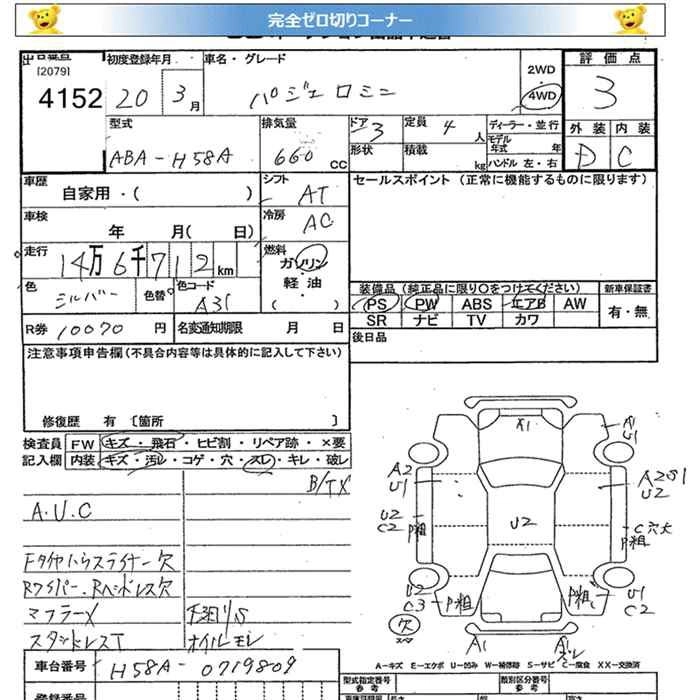 完全ゼロ切りコーナー
[2079]
4152
初度登録年月
20 3月
車名・グレード
パジェロミニ
2WD
4WD
評価点
3
外装 内装
D C
型式
ABA-H58A
排気量
660 CC
ドア 3
定員 4 人
ディーラー・並行
モデル年式 年
形状
積載 kg
ハンドル 左・右
車歴
自家用・( )
シフト
AT
セールスポイント (正常に機能するものに限ります)
車検
年 月( 日)
冷房
AC
走行
14万6千712km
燃料
ガソリン
軽油
( )
色
シルバー
色替
色コード
A31
装備品 (純正品に限り○をつけてください)
新車保証書
PS PW ABS エアB AW
有・無
SR ナビ TV カワ
R券 10070 円
名変通知期限 月 日
後日品
注意事項申告欄(不具合内容等は具体的に記入して下さい)
修復歴 有 〔箇所 〕
検査員 FW キズ・飛石・ヒビ割・リペア跡・×要
記入欄 内装 キズ・汚レ・コゲ・穴・スレ・キレ・破レ
B/TX
A.U.C
Fタイヤハウスライナー欠
Rワイパー.Rヘッドレス欠
マフラーX
スタッドレスT
下廻りS
オイルモレ
A1
A1
U1
A2
U1
A2S1
U2
U2
C2 P粗
U2
C穴大
P粗
U2
C3 P粗
P粗
U1
C2
欠
A1
A-キズ E-エクボ U-凹み W-補修跡 S-サビ C-腐食 XX-交換済
車台番号
H58A-0719809
型式指定番号
参考
類別区分番号
参考
登録番号